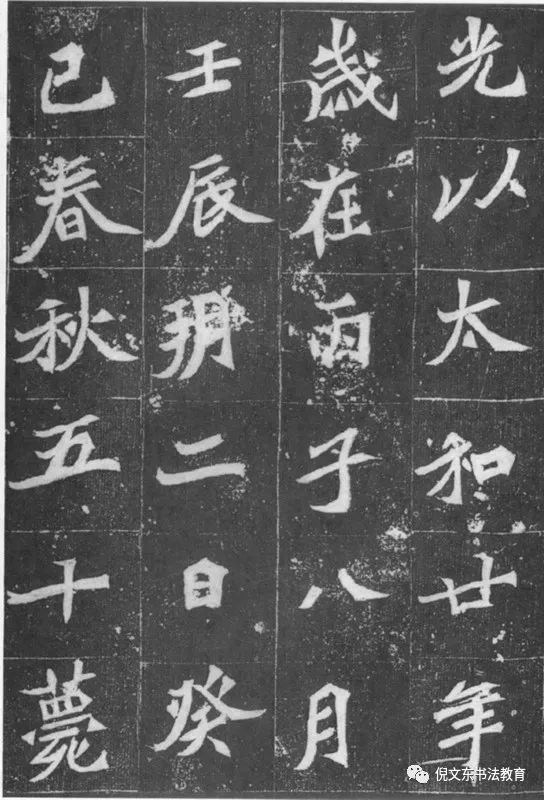 光以太和廿年
歲在丙子八月
壬辰朔二日癸
巳春秋五十薨
倪文东书法教育